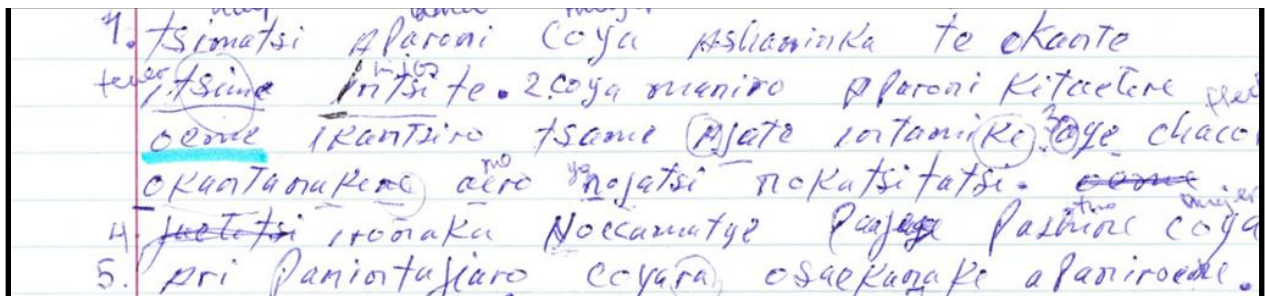 hay una mujer
1. tsimatsi Aparoni coya Ashaninka te okante
tener itsime hijos intsite. 2. coya maniro Aparoni Kitaetere
oeme ikantziro tsame Ajate intamike 3 oye chaco
okantanakene no aero yo nojatsi nokatsitatsi. oeme
4. iroñaka Noccamatye otro Pashine mujer coya
5. Ari Panintajiaro coyara osaekanake apaniroeni.